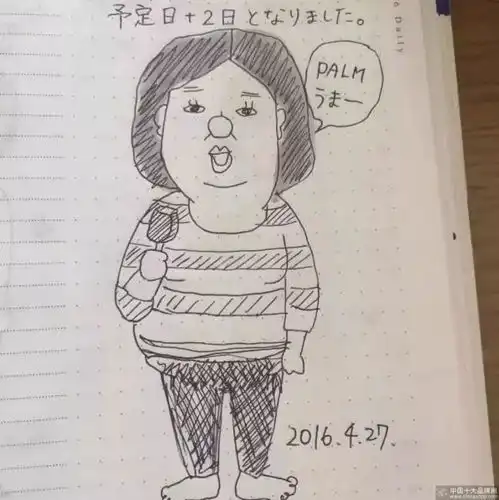 予定日+2日となりました。
Daily
PALM
うまー
2016.4.27.
中国十大品牌网